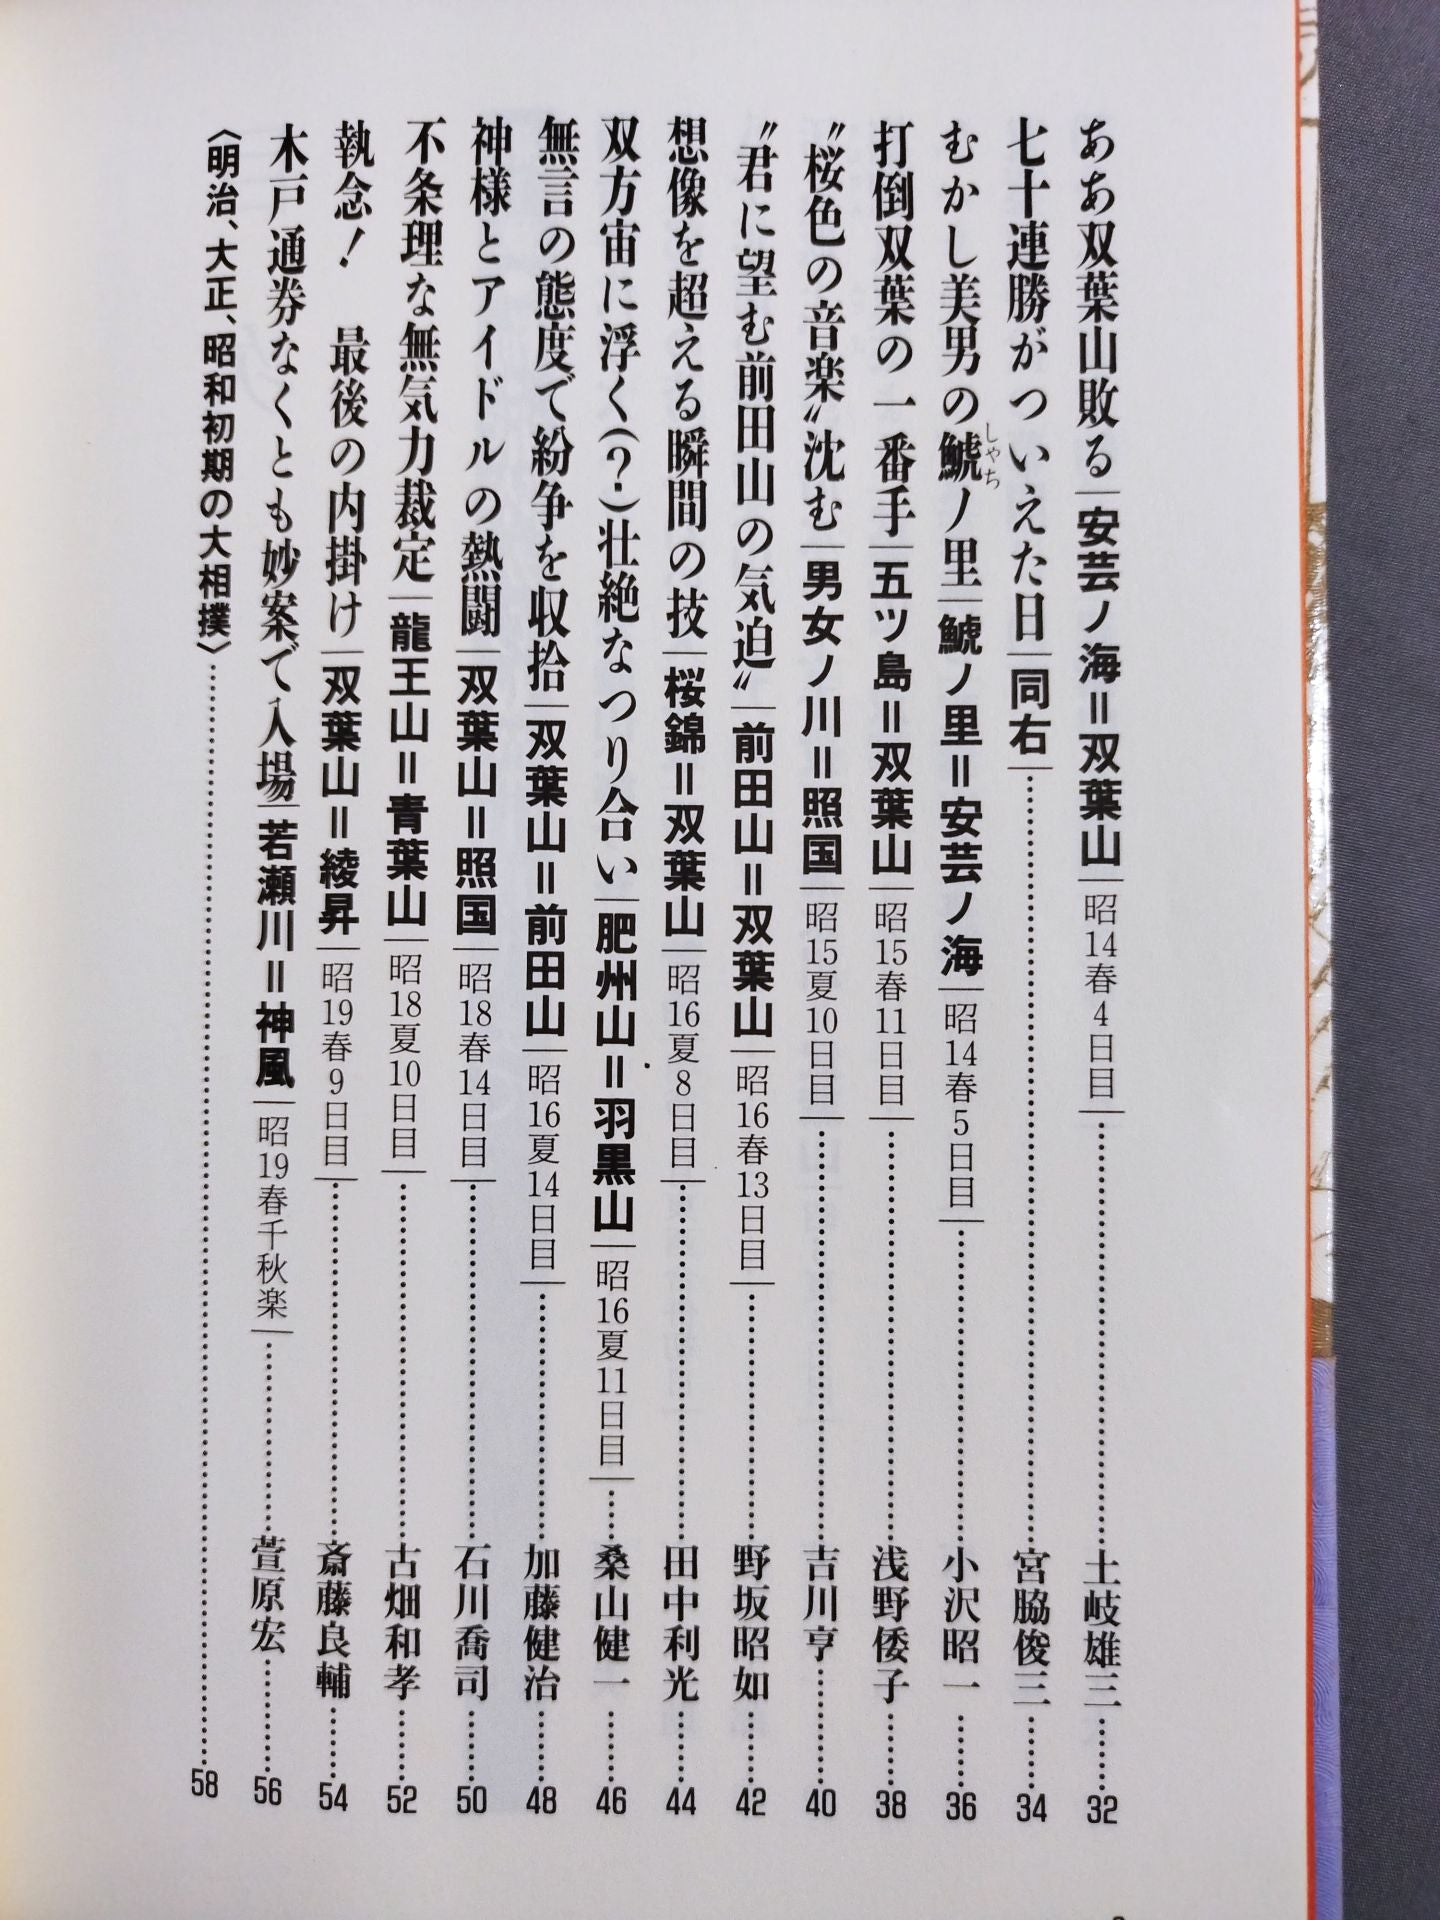 ああ双葉山敗る｜安芸ノ海＝双葉山｜昭14春4日目｜……土岐雄三……32
七十連勝がついえた日｜同右｜……宮脇俊三……34
むかし美男の鯱ノ里｜鯱ノ里＝安芸ノ海｜昭14春5日目｜……小沢昭一……36
しゃち
打倒双葉の一番手｜五ツ島＝双葉山｜昭15春11日目｜……浅野倭子……38
〝桜色の音楽〟沈む｜男女ノ川＝照国｜昭15夏10日目｜……吉川亨……40
〝君に望む前田山の気迫〟｜前田山＝双葉山｜昭16春13日目｜……野坂昭如……42
想像を超える瞬間の技｜桜錦＝双葉山｜昭16夏8日目｜……田中利光……44
双方宙に浮く(？)壮絶なつり合い｜肥州山＝羽黒山｜昭16夏11日目｜……桑山健一……46
無言の態度で紛争を収拾｜双葉山＝前田山｜昭16夏14日目｜……加藤健治……48
神様とアイドルの熱闘｜双葉山＝照国｜昭18春14日目｜……石川喬司……50
不条理な無気力裁定｜龍王山＝青葉山｜昭18夏10日目｜……古畑和孝……52
執念！　最後の内掛け｜双葉山＝綾昇｜昭19春9日目｜……斎藤良輔……54
木戸通券なくとも妙案で入場｜若瀬川＝神風｜昭19春千秋楽｜……萱原宏……56
〈明治、大正、昭和初期の大相撲〉……58